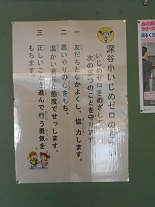 深谷小いじめゼロの誓い
いじめゼロをめざし、
次の三つのことを守ります。
一 友だちとなかよくし、協力します。
二 思いやりの心をもち、
温かい言葉と態度でせっします。
三 正しいことを進んで行う勇気を
もちます。